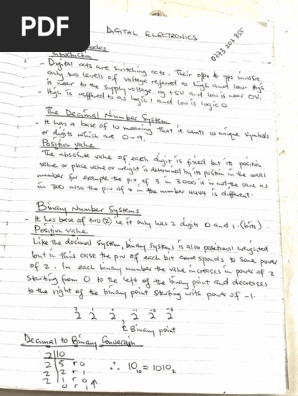 PDF
DIGITAL ELECTRONICS
Codes
Introduction
- Digital ccts are switching ccts. Their o/ps to i/ps involve
only two levels of voltage referred to high and low. High
is near to the supply voltage eg +5V and low is near 0V.
- High is reffered to as logic 1 and low is logic 0
The Decimal Number System
- It has a base of 10 meaning that it wants 10 unique symbols
or digits which are 0-9.
Position value
The absolute value of each digit is fixed but its position
value or place value or weight is determined by its position in the overall
number for example the p/v of 3 in 3000 is not the same as
in 300 also the p/v of 4 in the number 4444 is different.
Binary Number Systems
- It has base of two (2) ie it only has 2 digits 0 and 1 (bits)
Position value
Like the decimal system, binary system is also positional weighted
but in this case the p/v of each bit corresponds to some power
of 2. In each binary number the value increases in powers of 2
starting from 0 to the left of the binary point and decreases
to the right of the binary point starting with power of -1.
Binary point
Decimal to Binary Conversion
2 | 10
2 | 5 r 0
2 | 2 r 1
2 | 1 r 0
0 r 1
∴ 10₁₀ = 1010₂